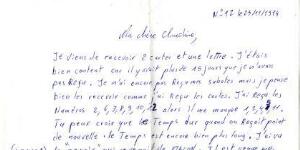 N°12 le 29/11/1914
Ma chère
Je viens de recevoir 2 cartes et une lettre. J'étais
bien content car il y avait plus de 15 jours que je n'avais
pas Reçu. Je n'ai encore pas Reçu mes sabots mais je pense
bien les recevoir comme j'ai Reçu les cartes. J'ai Reçu les
Numéros 2, 6, 7, 8, 9, 10, alors il me manque 1, 3, 4,
Tu peux croire que le Temps dur quand on Reçoit point
de nouvelle. le Temps est encore bien plus long. J'ai vu